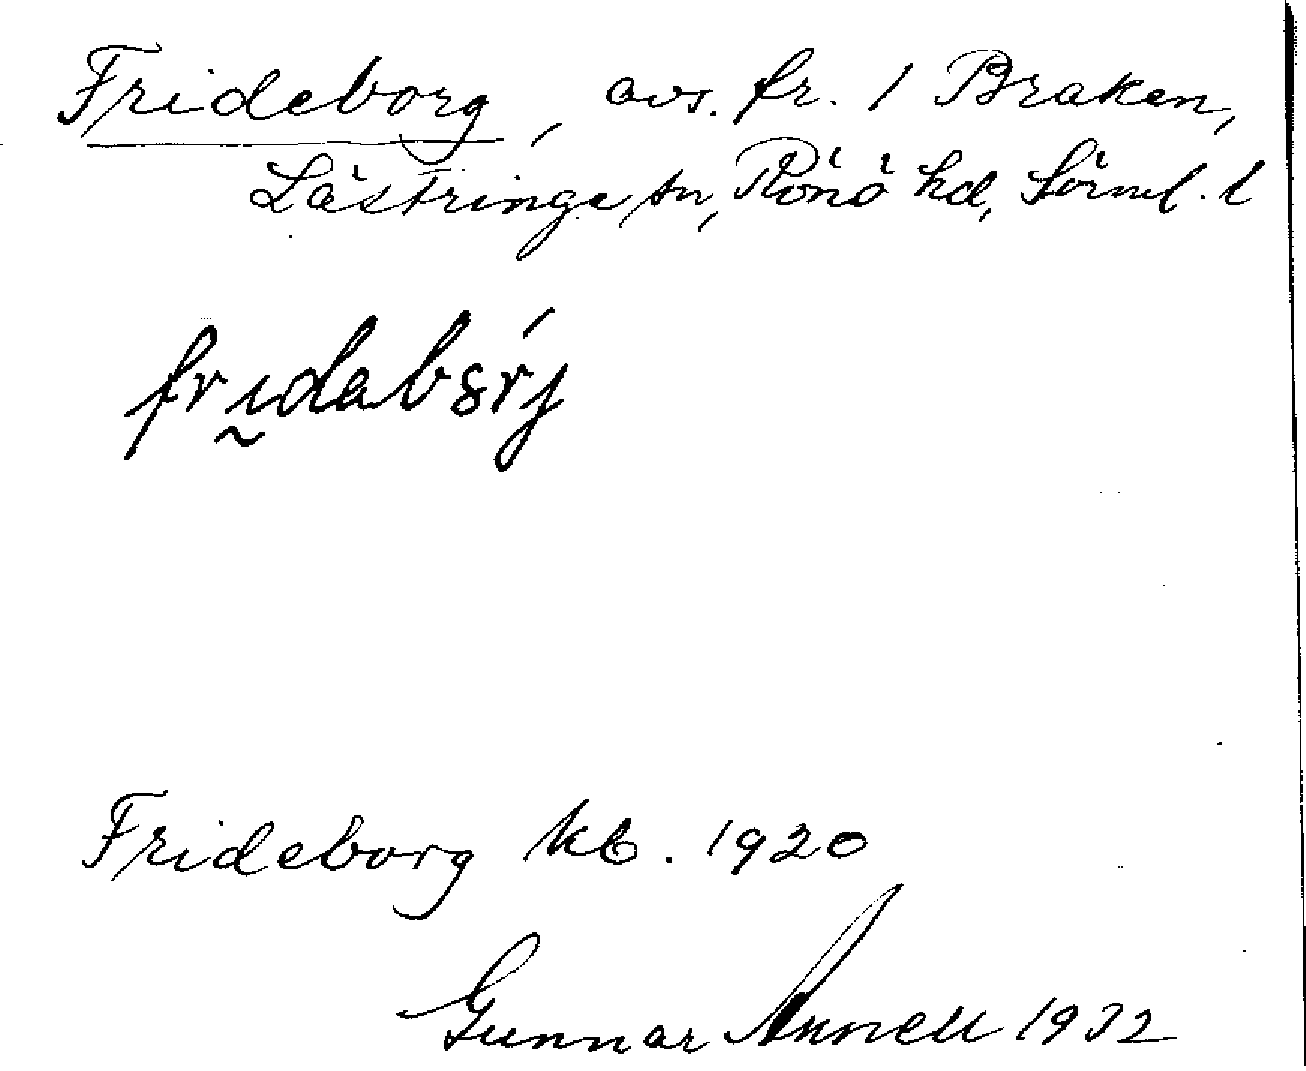 Frideborg, avs. fr. 1 Braken,
Lästringe sn, Rönö hd, Sörml. l
Frideborg kb. 1920
Gunnar Annell 1932